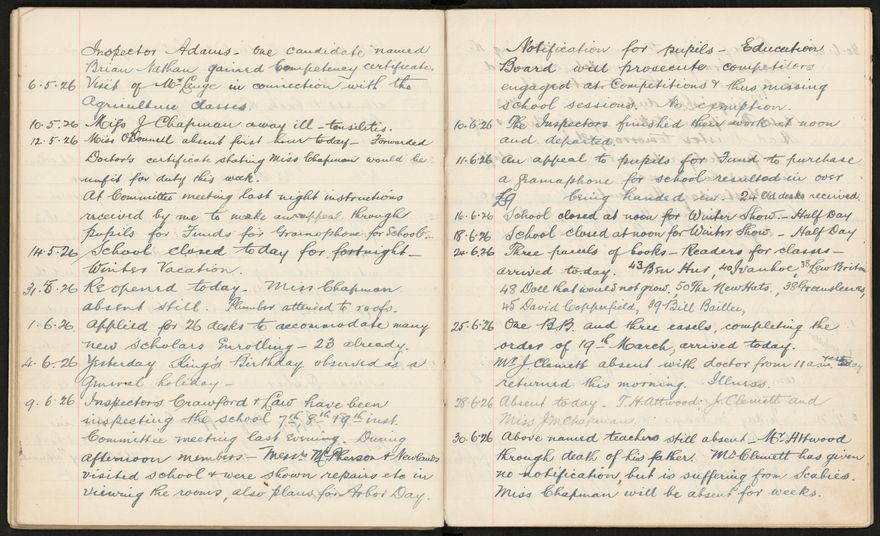 Inspector Adams - one candidate named
Brian Nathan gained Competency certificate.
6.5.26 Visit of Mr Lange in connection with the
Agriculture classes.
10.5.26 Miss J Chapman away ill - tonsilitis.
12.5.26 Miss O'Donnell absent first hour today - Forwarded
Doctor's certificate stating Miss Chapman would be
unfit for duty this week.
At Committee meeting last night instructions
received by me to make an appeal through
pupils for Funds for Gramophone for School.
14.5.26 School closed today for fortnight -
Winter Vacation.
31.5.26 Re opened today - Miss Chapman
absent still. Plumber attended to roofs.
1.6.26. Applied for 26 desks to accommodate many
new scholars Enrolling - 23 already.
4.6.26 Yesterday King's Birthday observed as a
General holiday -
9.6.26 Inspectors Crawford & Law have been
inspecting the school 7th 8th & 9th inst.
Committee meeting last evening. During
afternoon members - Messrs McPherson & Newlands
visited school & were shown repairs etc in
viewing the rooms, also plans for Arbor Day.
Notification for pupils - Education
Board will prosecute competitors
engaged at Competitions & thus missing
school sessions. No exemption.
10.6.26 The Inspectors finished their work at noon
and departed.
11.6.26 An appeal to pupils for Fund to purchase
a gramaphone for school resulted in over
£9 being handed in. 24 Old desks received.
16.6.26 School closed at noon for Winter Show - Half Day
18.6.26 School closed at noon for Winter Show. - Half Day
24.6.26 Three parcels of books - Readers for classes -
arrived today. 43 Ben Hur, 40 Ivanhoe, 38 Lew Britain
48 Doll that would not grow, 50 The New Hats, 38 Greensleeves,
45 David Copperfield, 39 Bill Bailey,
25.6.26 One B.B. and three easels, completing the
order of 19th March, arrived today.
Mr J. Clemett absent with doctor from 11 a.m. yesterday
returned this morning. Illness.
28.6.26 Absent today - T.H. Attwood. J Clemett and
Miss J M Chapman.
30.6.26 Above named teachers still absent - Mr Attwood
through death of his father. Mr Clemett has given
no notification, but is suffering from Scabies.
Miss Chapman will be absent for weeks.